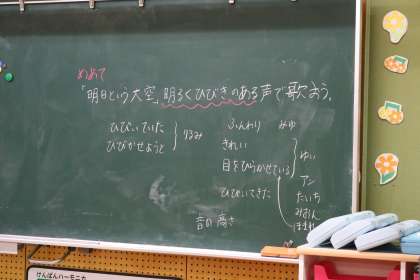 めあて
「明日という大空」明るくひびきのある声で歌おう。
ひびいていた
ひびかせようと
ふんわり みゆ
きれい
目をひらかせている ゆい
アン
ひびいてきた たいち
音の高さ
けんばんハーモニカ